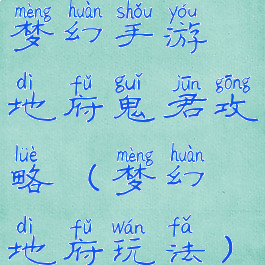 mèng huàn shǒu yóu
梦幻手游
dì fǔ guǐ jūn gōng
地府鬼君攻
lüè ( mèng huàn
略（梦幻
dì fǔ wán fǎ
地府玩法）